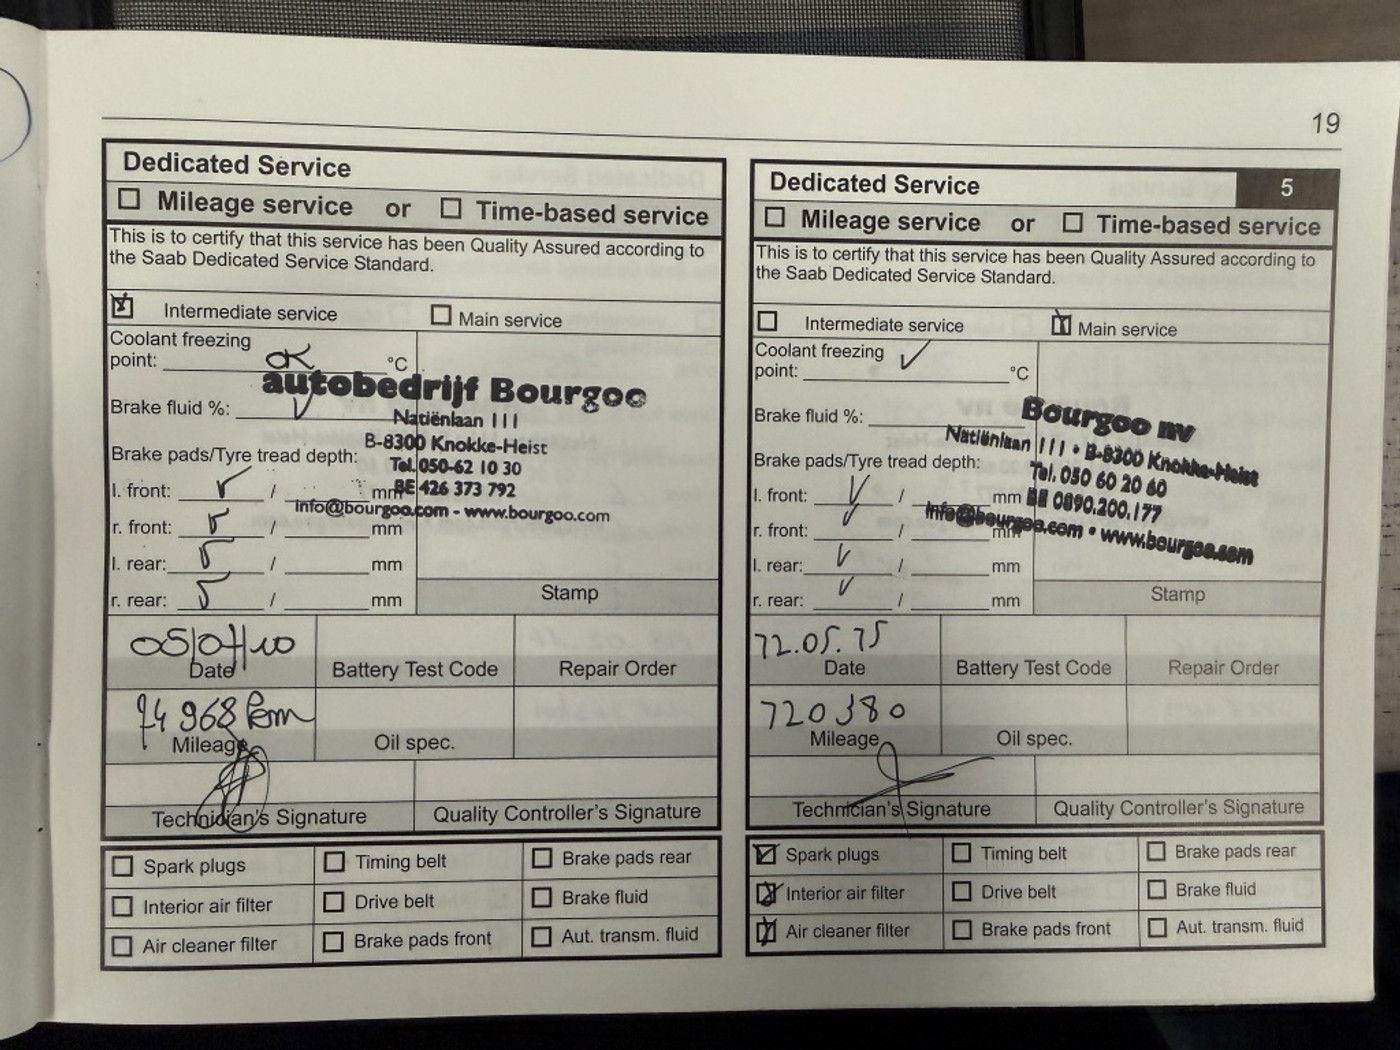 19
Dedicated Service
Mileage service or Time-based service
This is to certify that this service has been Quality Assured according to
the Saab Dedicated Service Standard.
Intermediate service
Main service
Coolant freezing
point: OK °C
autobedrijf Bourgoo
Brake fluid %:
Natiënlaan 111
B-8300 Knokke-Heist
Brake pads/Tyre tread depth:
Tel. 050-62 10 30
l. front: / mm
BE 426 373 792
info@bourgoo.com - www.bourgoo.com
r. front: / mm
l. rear: / mm
r. rear: / mm
Stamp
Date
Battery Test Code
Repair Order
74 968 km
Mileage
Oil spec.
Technician's Signature
Quality Controller's Signature
Spark plugs
Timing belt
Brake pads rear
Interior air filter
Drive belt
Brake fluid
Air cleaner filter
Brake pads front
Aut. transm. fluid
Dedicated Service
5
Mileage service or Time-based service
This is to certify that this service has been Quality Assured according to
the Saab Dedicated Service Standard.
Intermediate service
Main service
Coolant freezing
point: °C
Brake fluid %:
Bourgoo nv
Natiënlaan 111 • B-8300 Knokke-Heist
Brake pads/Tyre tread depth:
Tel. 050 60 20 60
l. front: / mm
BE 0890.200.177
info@bourgoo.com • www.bourgoo.com
r. front: / mm
l. rear: / mm
r. rear: / mm
Stamp
12.05.15
Date
Battery Test Code
Repair Order
120380
Mileage
Oil spec.
Technician's Signature
Quality Controller's Signature
Spark plugs
Timing belt
Brake pads rear
Interior air filter
Drive belt
Brake fluid
Air cleaner filter
Brake pads front
Aut. transm. fluid